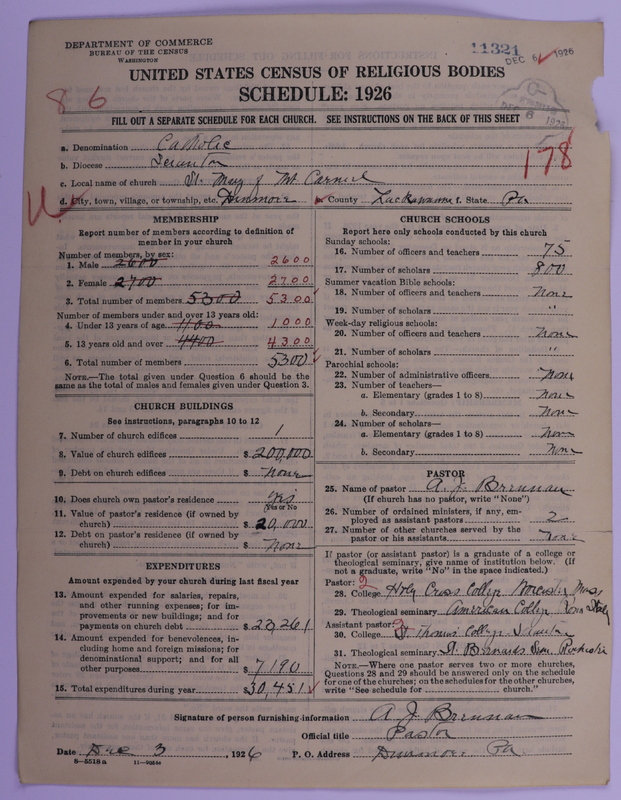 DEPARTMENT OF COMMERCE
BUREAU OF THE CENSUS
WASHINGTON
11321
DEC 6 1926
UNITED STATES CENSUS OF RELIGIOUS BODIES
SCHEDULE: 1926
8 6
DEC 6 1926
FILL OUT A SEPARATE SCHEDULE FOR EACH CHURCH. SEE INSTRUCTIONS ON THE BACK OF THIS SHEET
178
a. Denomination Catholic
b. Diocese Scranton
c. Local name of church St. Mary of Mt Carmel
d. City, town, village, or township, etc. Dunmore e. County Lackawanna f. State Pa
MEMBERSHIP
Report number of members according to definition of
member in your church
Number of members, by sex:
1. Male 2600 2600
2. Female 2700 2700
3. Total number of members 5300 5300
Number of members under and over 13 years old:
4. Under 13 years of age 1100 1000
5. 13 years old and over 4400 4300
6. Total number of members 5300
NOTE.—The total given under Question 6 should be the
same as the total of males and females given under Question 3.
CHURCH BUILDINGS
See instructions, paragraphs 10 to 12
7. Number of church edifices 1
8. Value of church edifices $ 200,000
9. Debt on church edifices $ None
10. Does church own pastor's residence Yes
(Yes or No)
11. Value of pastor's residence (if owned by
church) $ 20,000
12. Debt on pastor's residence (if owned by
church) $ None
EXPENDITURES
Amount expended by your church during last fiscal year
13. Amount expended for salaries, repairs,
and other running expenses; for im-
provements or new buildings; and for
payments on church debt $ 23,261
14. Amount expended for benevolences, in-
cluding home and foreign missions; for
denominational support; and for all
other purposes $ 7190
15. Total expenditures during year $ 30,451
CHURCH SCHOOLS
Report here only schools conducted by this church
Sunday schools:
16. Number of officers and teachers 75
17. Number of scholars 800
Summer vacation Bible schools:
18. Number of officers and teachers None
19. Number of scholars "
Week-day religious schools:
20. Number of officers and teachers None
21. Number of scholars "
Parochial schools:
22. Number of administrative officers None
23. Number of teachers—
a. Elementary (grades 1 to 8) None
b. Secondary None
24. Number of scholars—
a. Elementary (grades 1 to 8) None
b. Secondary None
PASTOR
25. Name of pastor A. J. Brennan
(If church has no pastor, write "None")
26. Number of ordained ministers, if any, em-
ployed as assistant pastors 2
27. Number of other churches served by the
pastor or his assistants None
If pastor (or assistant pastor) is a graduate of a college or
theological seminary, give name of institution below. (If
not a graduate, write "No" in the space indicated.)
Pastor: 2
28. College Holy Cross College Worcester Mass
29. Theological seminary American College Rome Italy
Assistant pastor: 2
30. College St Thomas College Scranton
31. Theological seminary St. Bernards Sem. Rochester
NOTE.—Where one pastor serves two or more churches,
Questions 28 and 29 should be answered only on the schedule
for one of the churches; on the schedules for the other churches,
write "See schedule for church."
Signature of person furnishing information A J Brennan
Official title Pastor
Date Dec 3, 1926 P. O. Address Dunmore Pa.
8—5518a 11—9084